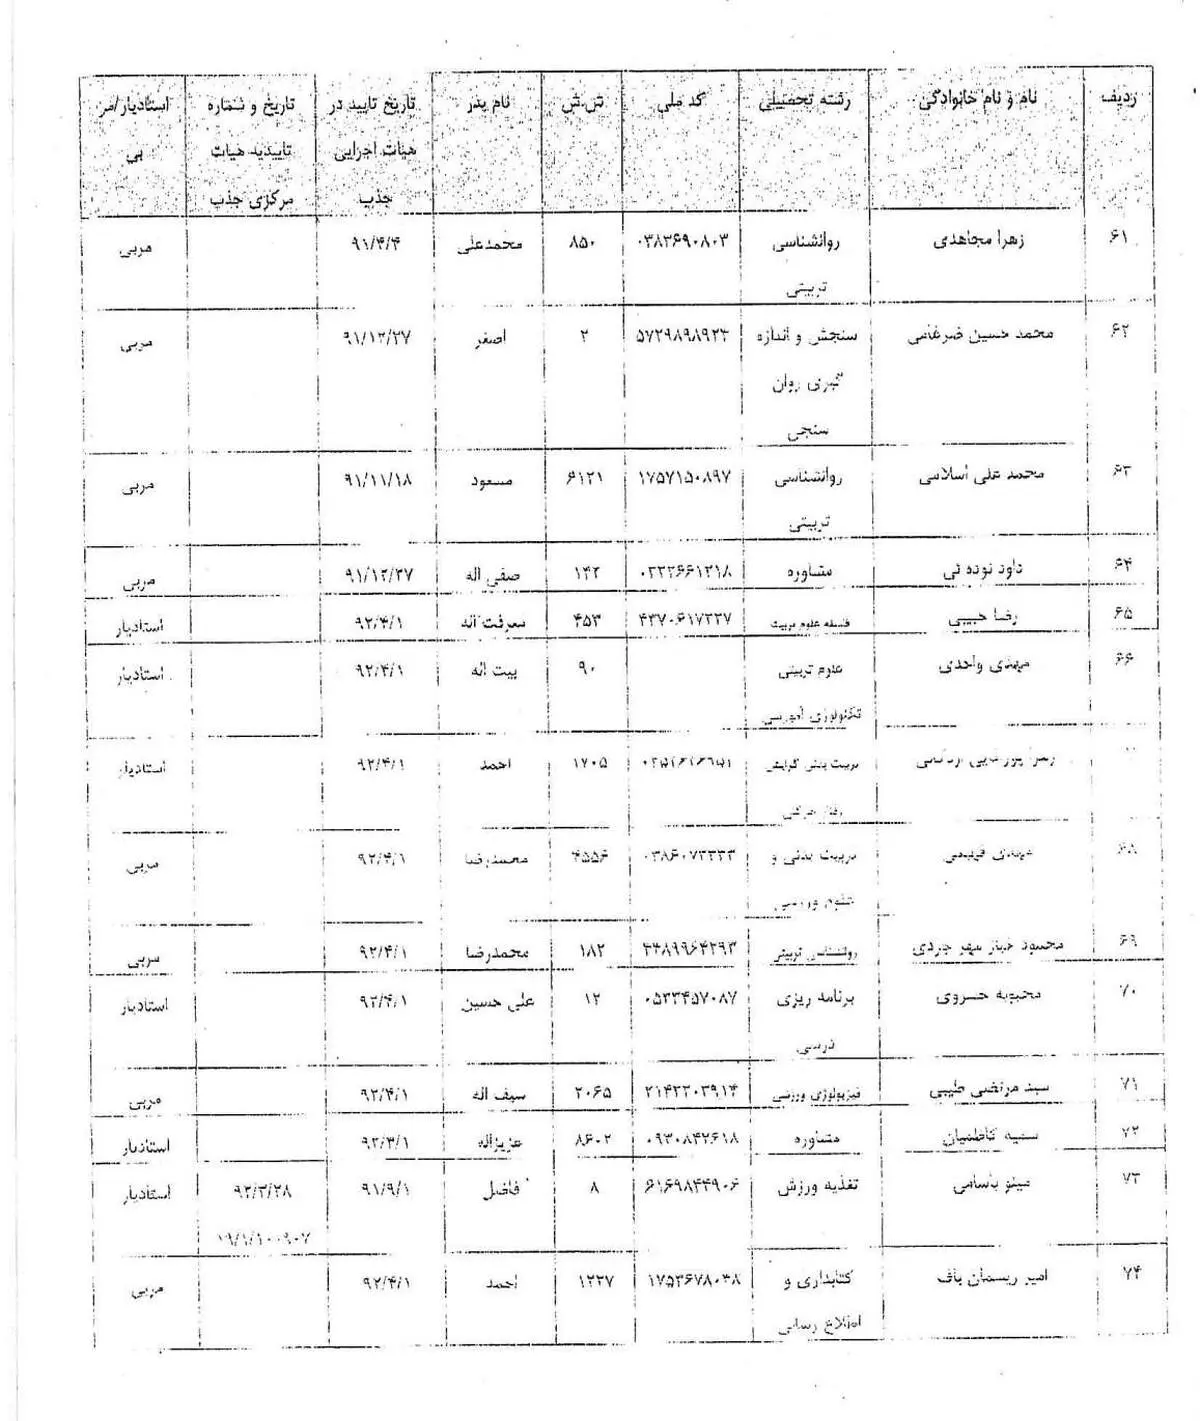 ردیف نام و نام خانوادگی رشته تحصیلی کد ملی ش.ش نام پدر تاریخ تایید در هیات اجرایی جذب تاریخ و شماره تاییدیه هیات مرکزی جذب استادیار/مربی
۶۱ زهرا مجاهدی روانشناسی تربیتی ۰۳۸۳۶۹۰۸۰۳ ۸۵۰ محمدعلی ۹۱/۴/۴ مربی
۶۲ محمد حسین ضرغامی سنجش و اندازه گیری روان سنجی ۵۷۲۹۸۹۸۹۲۳ ۲ اصغر ۹۱/۱۲/۲۷ مربی
۶۳ محمد علی اسلامی روانشناسی تربیتی ۱۷۵۷۱۵۰۸۹۷ ۶۱۲۱ مسعود ۹۱/۱۱/۱۸ مربی
۶۴ داود نوده ئی مشاوره ۱۴۲ صفی اله ۹۱/۱۲/۲۷ مربی
۶۵ رضا حبیبی فلسفه علوم تربیت ۴۵۳ معرفت اله ۹۲/۴/۱ استادیار
۶۶ مهدی واحدی علوم تربیتی تکنولوژی آموزشی ۹۰ بیت اله ۹۲/۴/۱ استادیار
تربیت بدنی گرایش رفتار حرکتی ۱۷۰۵ احمد ۹۲/۴/۱ استادیار
۶۸ مهدی تربیت بدنی و علوم ورزشی ۴۵۵۶ محمدرضا ۹۲/۴/۱ مربی
۶۹ محمود خباز مهر جردی روانشناسی تربیتی ۴۴۸۹۹۶۴۲۹۳ ۱۸۲ محمدرضا ۹۲/۴/۱ مربی
۷۰ محبوبه خسروی برنامه ریزی درسی ۰۵۳۳۴۵۷۰۸۷ ۱۲ علی حسین ۹۲/۴/۱ استادیار
۷۱ سید مرتضی طیبی فیزیولوژی ورزشی ۲۰۶۵ سیف اله ۹۲/۴/۱ مربی
۷۲ سمیه کاظمیان مشاوره ۰۹۳۰۸۴۲۶۱۸ ۸۶۰۲ عزیزاله ۹۲/۳/۱ استادیار
۷۳ مینو باسامی تغذیه ورزش ۶۱۶۹۸۴۴۹۰۶ ۸ فاضل ۹۱/۹/۱ ۹۲/۲/۲۸ ۱۹/۱/۱۰۰۹۰۷ استادیار
۷۴ امیر ریسمان باف کتابداری و اطلاع رسانی ۱۷۵۳۶۷۸۰۳۸ ۱۲۲۷ احمد ۹۲/۴/۱ مربی